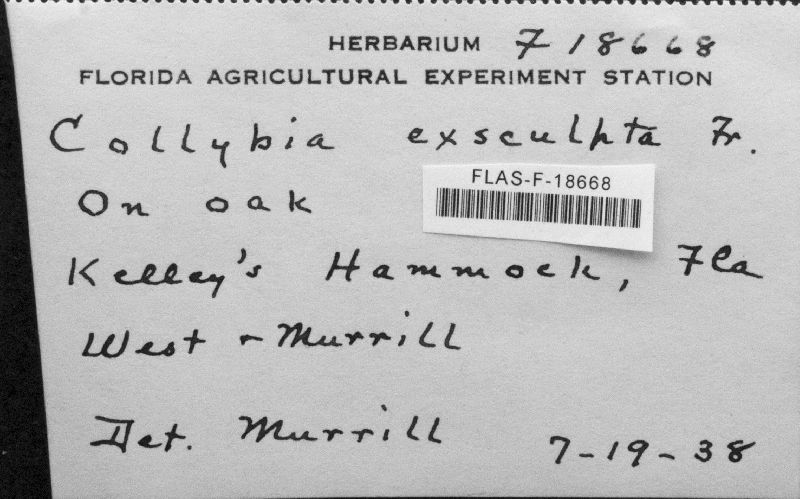 HERBARIUM F 18668
FLORIDA AGRICULTURAL EXPERIMENT STATION
Collybia exsculpta Fr.
FLAS-F-18668
On oak
Kelley's Hammock, Fla
West & Murrill
Det. Murrill 7-19-38